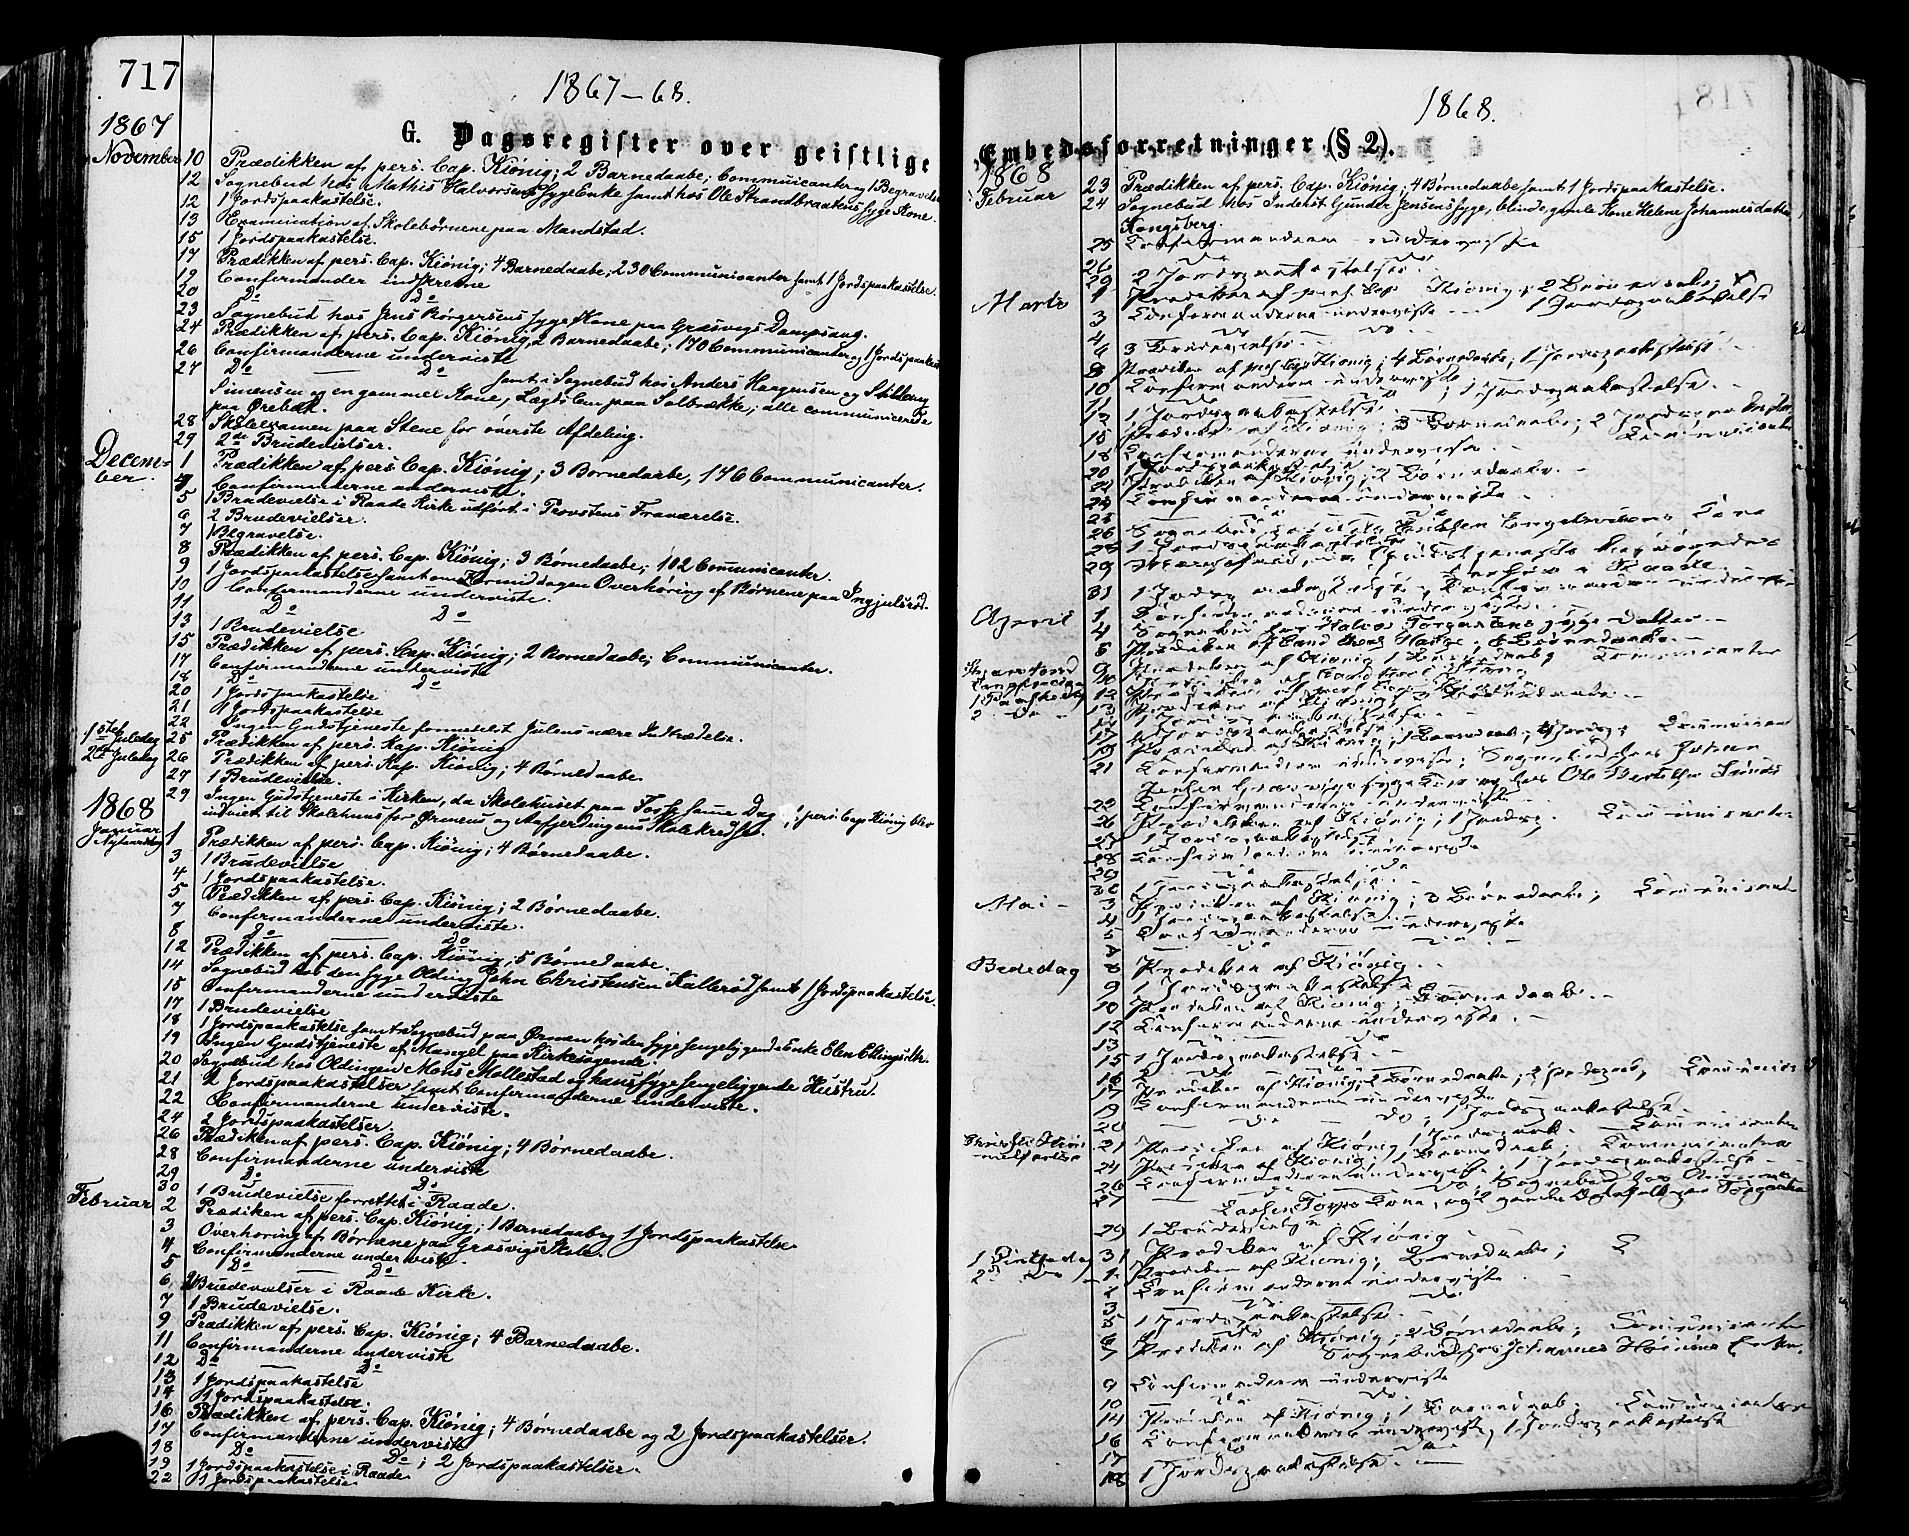 717
1867-68.
G. Dagsregister over geistlige
1867
November 10 Prædikken af pers. Cap. Kiönig; 2 Barnedaabe; Communicanter og 1 Begravelse
12 Sognebud hos Mathis Halvorsens syge Enke samt hos Ole Strandbraatens syge Kone.
12 1 Jordspaakastelse.
13 Examination af Skolebörnene paa Mandstad.
15 1 Jordspaakastelse.
17 Prædikken af pers. Cap. Kiönig; 4 Barnedaabe; 230 Communicanter samt 1 Jordspaakastelse.
19 Confirmander indskrevne
20 Do Do
23 Sognebud hos Jens Börgersens syge Kone paa Græsvigs Dampsaug.
24 Prædikken af pers. Cap. Kiönig, 2 Barnedaabe; 170 Communicanter og 1 Jordspaakast
26 Confirmanderne underviste
27 Do Do samt i Sognebud hos Anders Haagensen og
Simensen og en gammel Kone, Lægdslem paa Solbrække; alle communicerede
paa Örebæk.
28 Skoleexamen paa Stene for överste Afdeling.
29 2de Brudevielser.
Decem-
ber. 1 Prædikken af pers. Cap. Kiönig; 3 Börnedaabe, 176 Communicanter.
4 Confirmanderne underviste.
5 1 Brudevielse i Raade Kirke udfört i Provstens Fraværelse.
6 2 Brudevielser.
7 1 Begravelse.
8 Prædikken af pers. Cap. Kiönig; 3 Börnedaabe; 102 Communicanter.
9 1 Jordspaakastelse samt om Formiddagen Overhöring af Börnene paa Ingjulsröd.
10 Confirmanderne underviste.
11 Do Do
13 1 Brudevielse
15 Prædikken af pers. Cap. Kiönig; 2 Börnedaabe; Communicanter.
17 Confirmanderne underviste
18 Do Do
20 1 Jordspaakastelse
21 1 Jordspaakastelse
22 Ingen Gudstjeneste formedelst Julens nære Indtrædelse.
1ste Juledag 25 Prædikken af pers. Kap. Kiönig
2den Juledag 26 Prædikken af pers. Kap. Kiönig; 4 Börnedaabe.
27 1 Brudevielse.
29 Ingen Gudstjeneste i Kirken, da Skolehuset paa Tosse samme Dag af pers. Cap. Kiönig blev
indviet til Skolehuus for Örmens og Aafjerdingens Skolekreds.
1868
Januar
Nytaarsdag 1 Prædikken af pers. Cap. Kiönig; 4 Börnedaabe.
3 1 Brudevielse
4 1 Jordspaakastelse.
5 Prædikken af pers. Cap. Kiönig; 2 Börnedaabe.
7 Confirmanderne underviste.
8 Do Do
12 Prædikken af pers. Cap. Kiönig; 5 Börnedaabe.
14 Sognebud hos den syge Olding John Christensen Kalleröd samt 1 Jordspaakastelse.
15 Confirmanderne underviste
17 1 Brudevielse
18 1 Jordspaakastelse samt Sognebud paa Örmen hos den syge sengeliggende Enke Elen Ellingsdtr.
19 Ingen Gudstjeneste af Mangel paa Kirkesögende.
20 Sognebud hos Oldingen Mons Mollestad og hans syge sengeliggende Hustru.
21 2 Jordspaakastelser samt Confirmanderne underviste.
22 Confirmanderne underviste.
24 2 Jordspaakastelser.
26 Prædiken af pers. Cap. Kiönig; 4 Börnedaabe.
28 Confirmanderne underviste
29 Do Do
30 1 Brudevielse forrettet i Raade.
Februar 2 Prædiken af pers. Cap. Kiönig; 1 Barnedaab og 1 Jordspaakastelse
3 Overhöring af Börnene paa Græsvigs Skole.
4 Confirmanderne underviste.
5 Do Do
6 2 Brudevielser i Raade Kirke.
7 1 Brudevielse.
9 Prædikken af pers. Cap. Kiönig; 4 Barnedaabe.
11 Confirmanderne underviste
12 Do Do
13 1 Jordspaakastelse
14 1 Jordspaakastelse.
16 Prædikken af pers. Cap. Kiönig; 4 Börnedaabe og 2 Jordspaakastelser.
17 Confirmanderne underviste
18 Do Do; 2 Jordspaakastelser.
19 1 Jordspaakastelse i Raade
22 1 Jordspaakastelse.
1868.
Embedsforretninger (§ 2).
1868
Februar 23 Prædikken af pers. Cap. Kiönig; 4 Börnedaabe samt 1 Jordspaakastelse.
24 Sognebud hos Inderst Gunder Jensens syge, blinde, gamle Kone Helene Johannesdatter
Kongsberg.
25 Confirmanderne underviste
26 Do
29 2 Jordspaakastelser.
Marts 1 Prædiken af pers. Cap. Kiönig; 2 Börnedaabe;
3 Confirmanderne underviste 1 Jordspaakastelse
4 Do Do
6 3 Brudevielser
8 Prædiken af pers. Cap. Kiönig; 4 Börnedaabe; 1 Jordspaakastelse
10 Confirmanderne underviste; 1 Jordspaakastelse.
11 Do Do
12 1 Jordspaakastelse
15 Prædiken af Kiönig; 3 Börnedaabe; 2 Jordspaakastelser
18 Confirmanderne underviste. Communicanter
20 1 Jordspaakastelse
22 Prædiken af Kiönig; 2 Börnedaabe.
24 Confirmanderne underviste
25 Do Do
26 Sognebud hos Engelsvikens Kone
28 1 Jordspaakastelse
29
31 1 Jordspaakastelse; Confirmanderne underviste
April 1 Confirmanderne underviste.
4 Sognebud hos Halvor Torgersens syge Datter
5 Prædiken af Cand. Hauge; Börnedaabe.
Skjærtorsd 9 Prædiken af Kiönig 1 Barnedaab; Communicanter
Langfredag 10 Prædiken af Cand.
1 Paaskedag 12 Prædiken af pers. Cap. Kiönig
2 Do 13 Prædiken af Kiönig; Börnedaabe
14 1 Jordspaakastelse
17 Jordspaakastelse
19 Prædiken af Kiönig; 1 Barnedaab; Jordsp; Communicanter
21 Confirmanderne underviste; Sognebud hos Johan
Jensen Græsvigs syge Kone og hos Ole Bertelsen Sunds
22 Confirmanderne underviste
26 Prædiken af Kiönig; 1 Jordsp. Communicanter
27 1 Jordspaakastelse
28 Confirmanderne underviste
29 Do Do
30 1 Jordspaakastelse
Mai 3 Prædiken af Kiönig; 3 Börnedaabe; Communicanter
4 1 Jordspaakastelse
5 Confirmanderne underviste
6 Do Do
Bededag 8 Prædiken af Kiönig.
9 1 Jordspaakastelse
10 Prædiken af Kiönig; Börnedaabe.
12 Confirmanderne underviste.
13 Do Do
15 1 Jordspaakastelse
16 Do
17 Prædiken af Kiönig; 2 Börnedaabe; 2 Jordspaak; Communicanter
19 Confirmanderne underviste
20 Do Do; 1 Jordspaakastelse.
Christi Him-
melfartsd 21 Prædiken af Kiönig 1 Jordspaak. Communicanter
24 Prædiken af Kiönig 1 Barnedaab; Communicanter
26 Confirmanderne underviste; 1 Jordspaakastelse
27 Do Do; Sognebud hos Anders
Larsen Torps Kone, og 2 gamle
29 1 Brudevielse
1 Pintsedag 31 Prædiken af Kiönig
2 Do 1 Prædiken af Kiönig; Börnedaabe;
2 Confirmanderne underviste
3 Do Do
5 1 Jordspaakastelse.
6 Do
7 Prædiken af Kiönig; 2 Börnedaabe; Communicanter
Sognebud hos Johannes Höiums Enke.
9 Confirmanderne underviste
10 Do Do
14 Prædiken af Kiönig; 1 Barnedaab; Communicanter
16 Confirmanderne underviste; 1 Jordspaakastelse
17 Do Do
18 1 Jordspaakastelse.